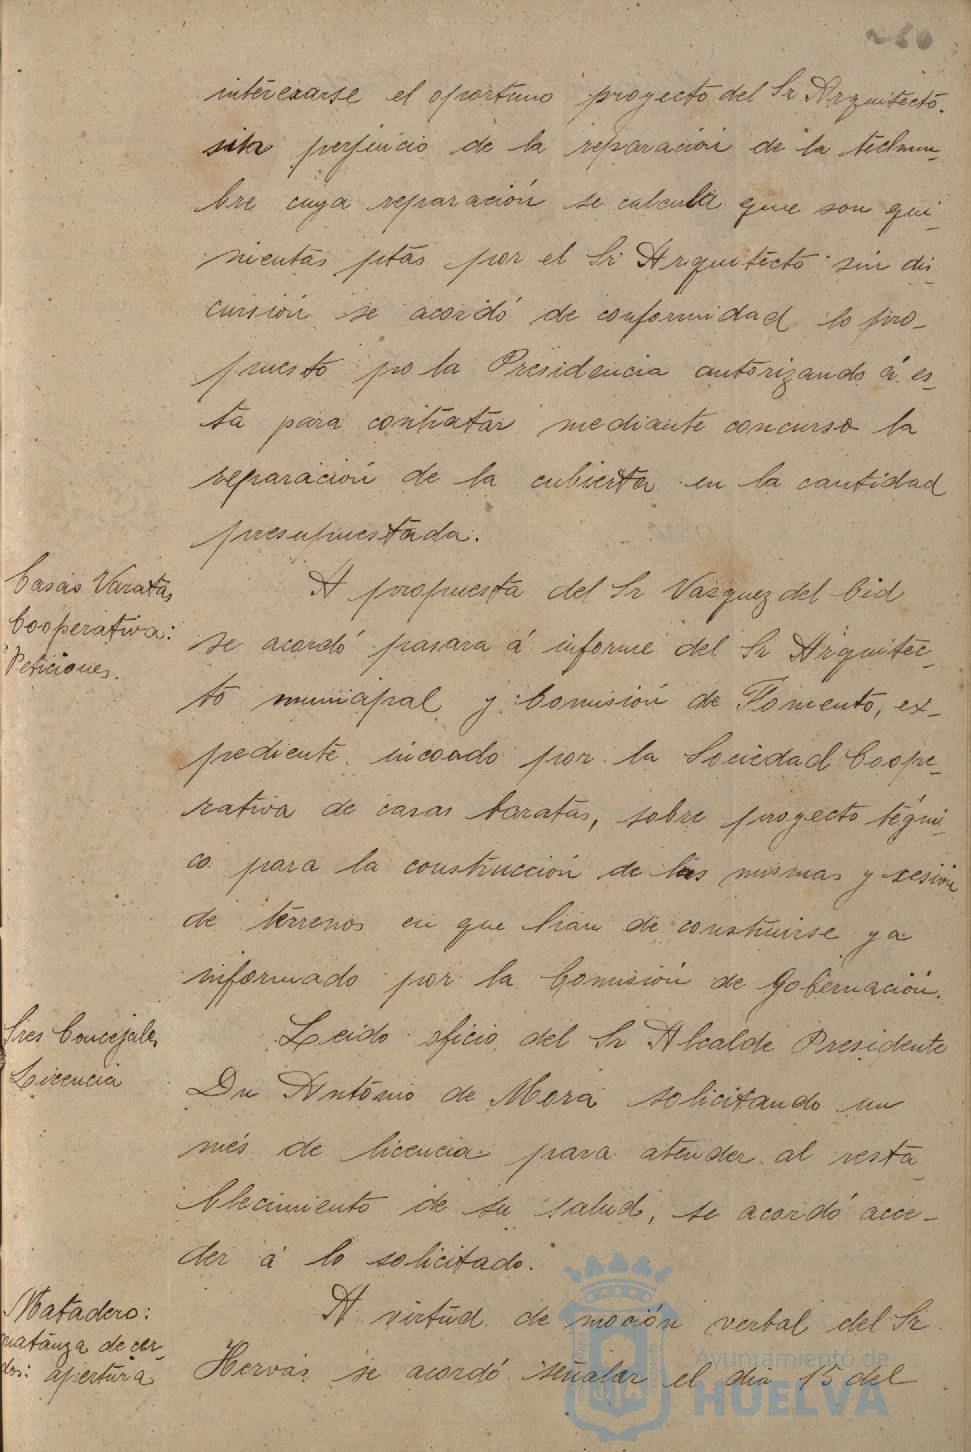 260
interesarse el oportuno proyecto del Sr Arquitecto.
sin perjuicio de la reparación de la techum-
bre cuya reparación se calcula que son qui-
nientas ptas por el Sr Arquitecto sin dis-
cursión se acordó de conformidad lo pro-
puesto po la Presidencia autorizando á es-
ta para contratar mediante concurso la
reparación de la cubierta en la cantidad
presupuestada.
Casas Varatas
Cooperativa:
Peticiones.
A propuesta del Sr Vazquez del Cid
se acordó pasara á informe del Sr Arquitec-
to municipal y Comisión de Fomento, ex-
pediente incoado por la Sociedad Coope-
rativa de casas baratas, sobre proyecto tégni-
co para la construcción de las mismas y sesión
de terrenos en que han de construirse ya
informado por la Comisión de Gobernación.
Sres Concejales
Licencia
Leido oficio del Sr Alcalde Presidente
Dn António de Mora solicitando un
més de licencia para atender al resta
blecimiento de su salud, se acordó acce-
der á lo solicitado.
Matadero:
matanza de cer-
dos: apertura
A virtúd de moción verbal del Sr
Hervás se acordó señalar el dia 15 del
Ayuntamiento de
HUELVA